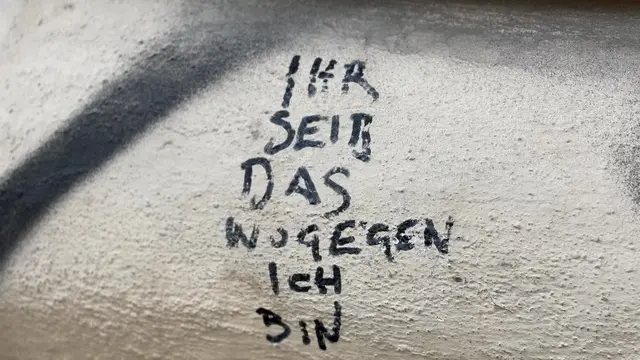 IHR
SEID
DAS
WOGEGEN
ICH
BIN